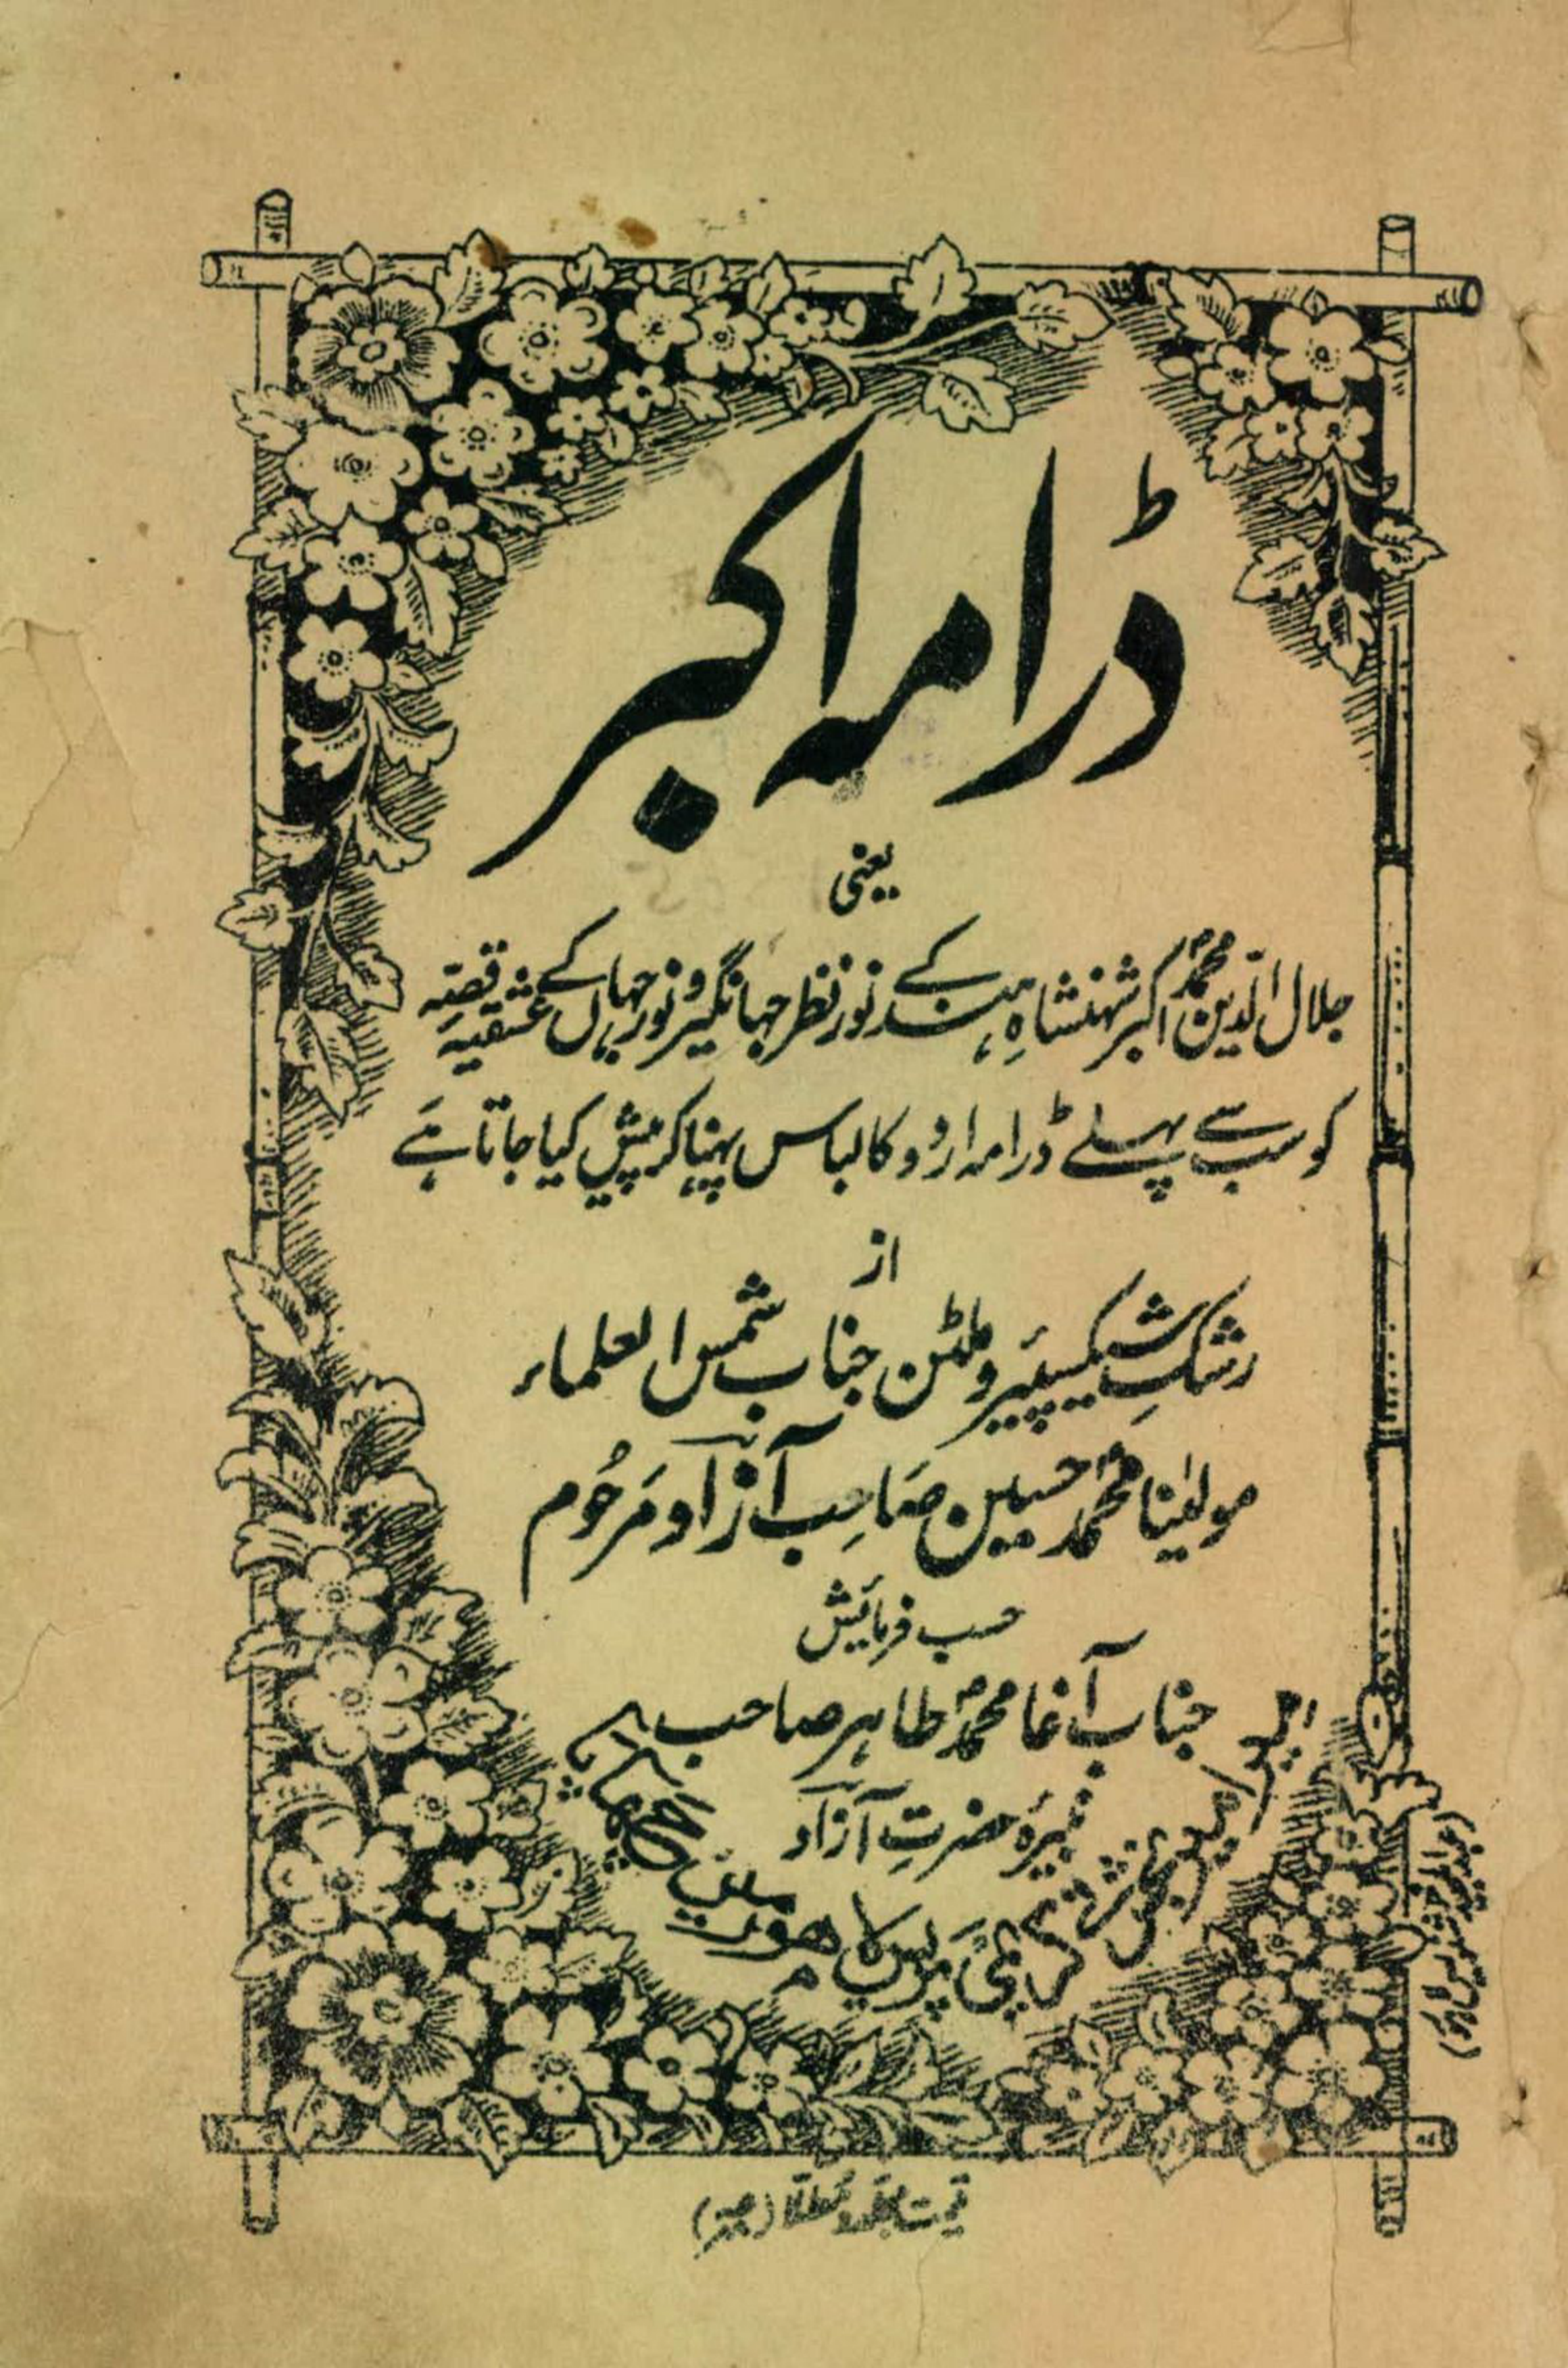 ڈرامہ اکبر
یعنی
جلال الدین محمدؐ اکبر شہنشاہِ ہند کے نورنظر جہانگیر و نورجہاں کے عشقیہ قصّہ
کو سب سے پہلے ڈرامہ اردو کا لباس پہنا کر پیش کیا جاتا ہے
از
رشکِ شیکسپیئر و ملٹن جناب شمس العلماء
مولٰینا محمد حسین صاحب آزاد مرحوم
حسب فرمائش
جناب آغا محمدؐ طاہر صاحب
نبیرۂ حضرتِ آزاد
کریمی پریس لاہور میں
قیمت مجلد و مطلا